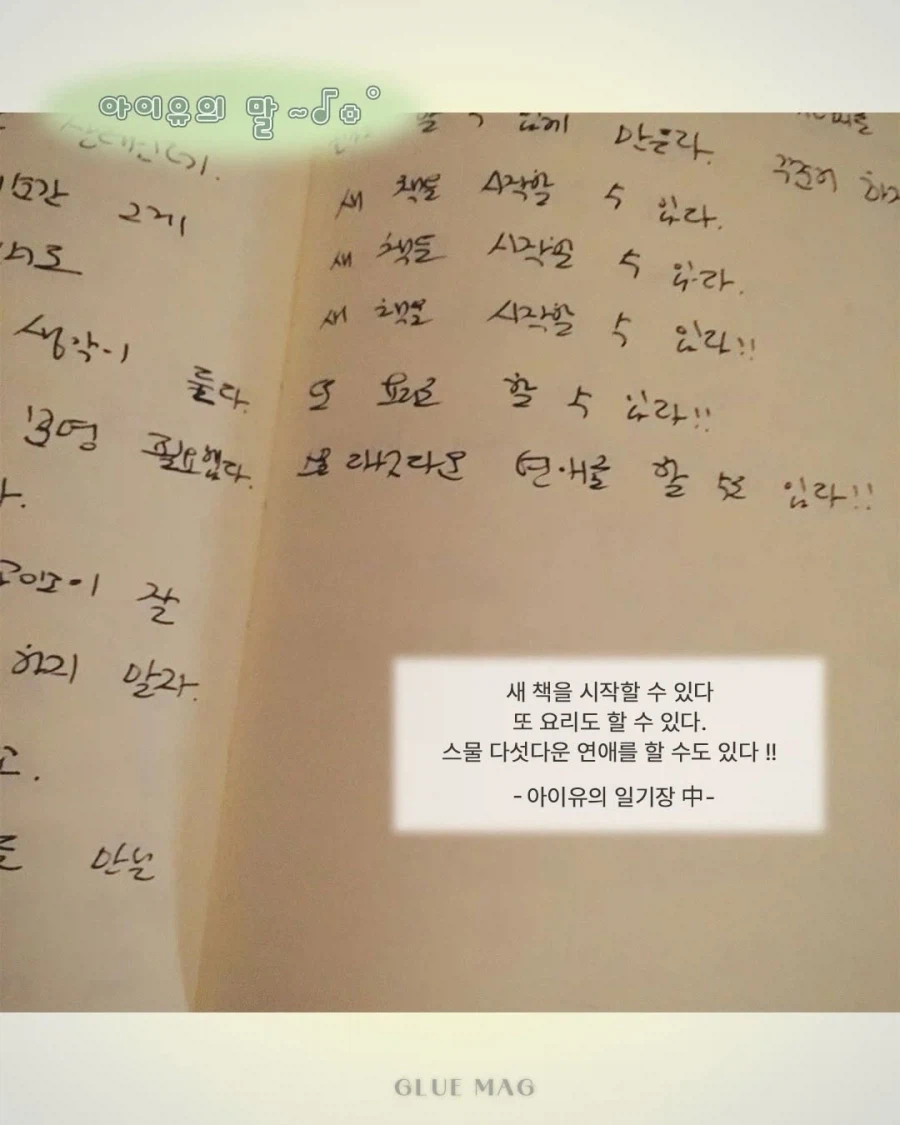 아이유의 말 ~♪
만든다.
꾸준히
그게
새 책을 시작할 수 있다.
새 책을 시작할 수 있다.
새 책을 시작할 수 있다!!
생각이 든다.
또 요리도 할 수 있다!!
필요했다.
스물 다섯다운 연애를 할 수도 있다!!
잘
하지 말라.
새 책을 시작할 수 있다
또 요리도 할 수 있다.
스물 다섯다운 연애를 할 수도 있다 !!
- 아이유의 일기장 中 -
GLUE MAG